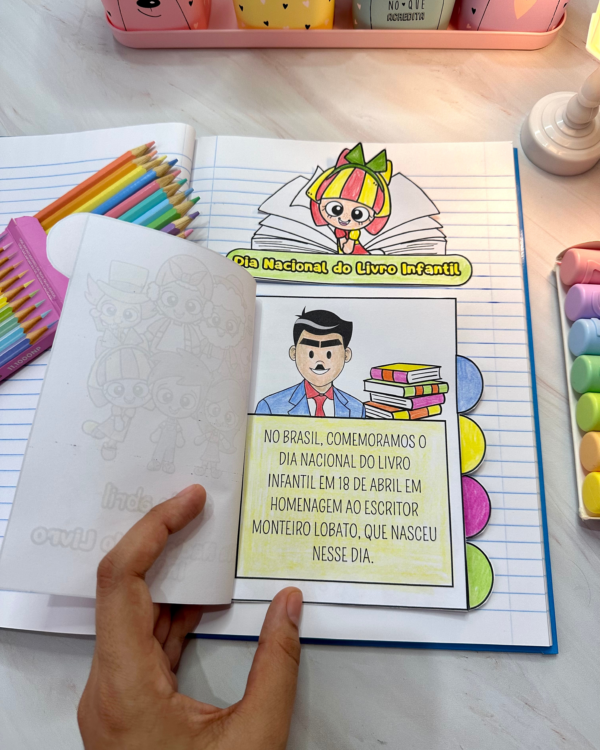 NO QUE
ACREDITA
Dia Nacional do Livro Infantil
NO BRASIL, COMEMORAMOS O
DIA NACIONAL DO LIVRO
INFANTIL EM 18 DE ABRIL EM
HOMENAGEM AO ESCRITOR
MONTEIRO LOBATO, QUE NASCEU
NESSE DIA.